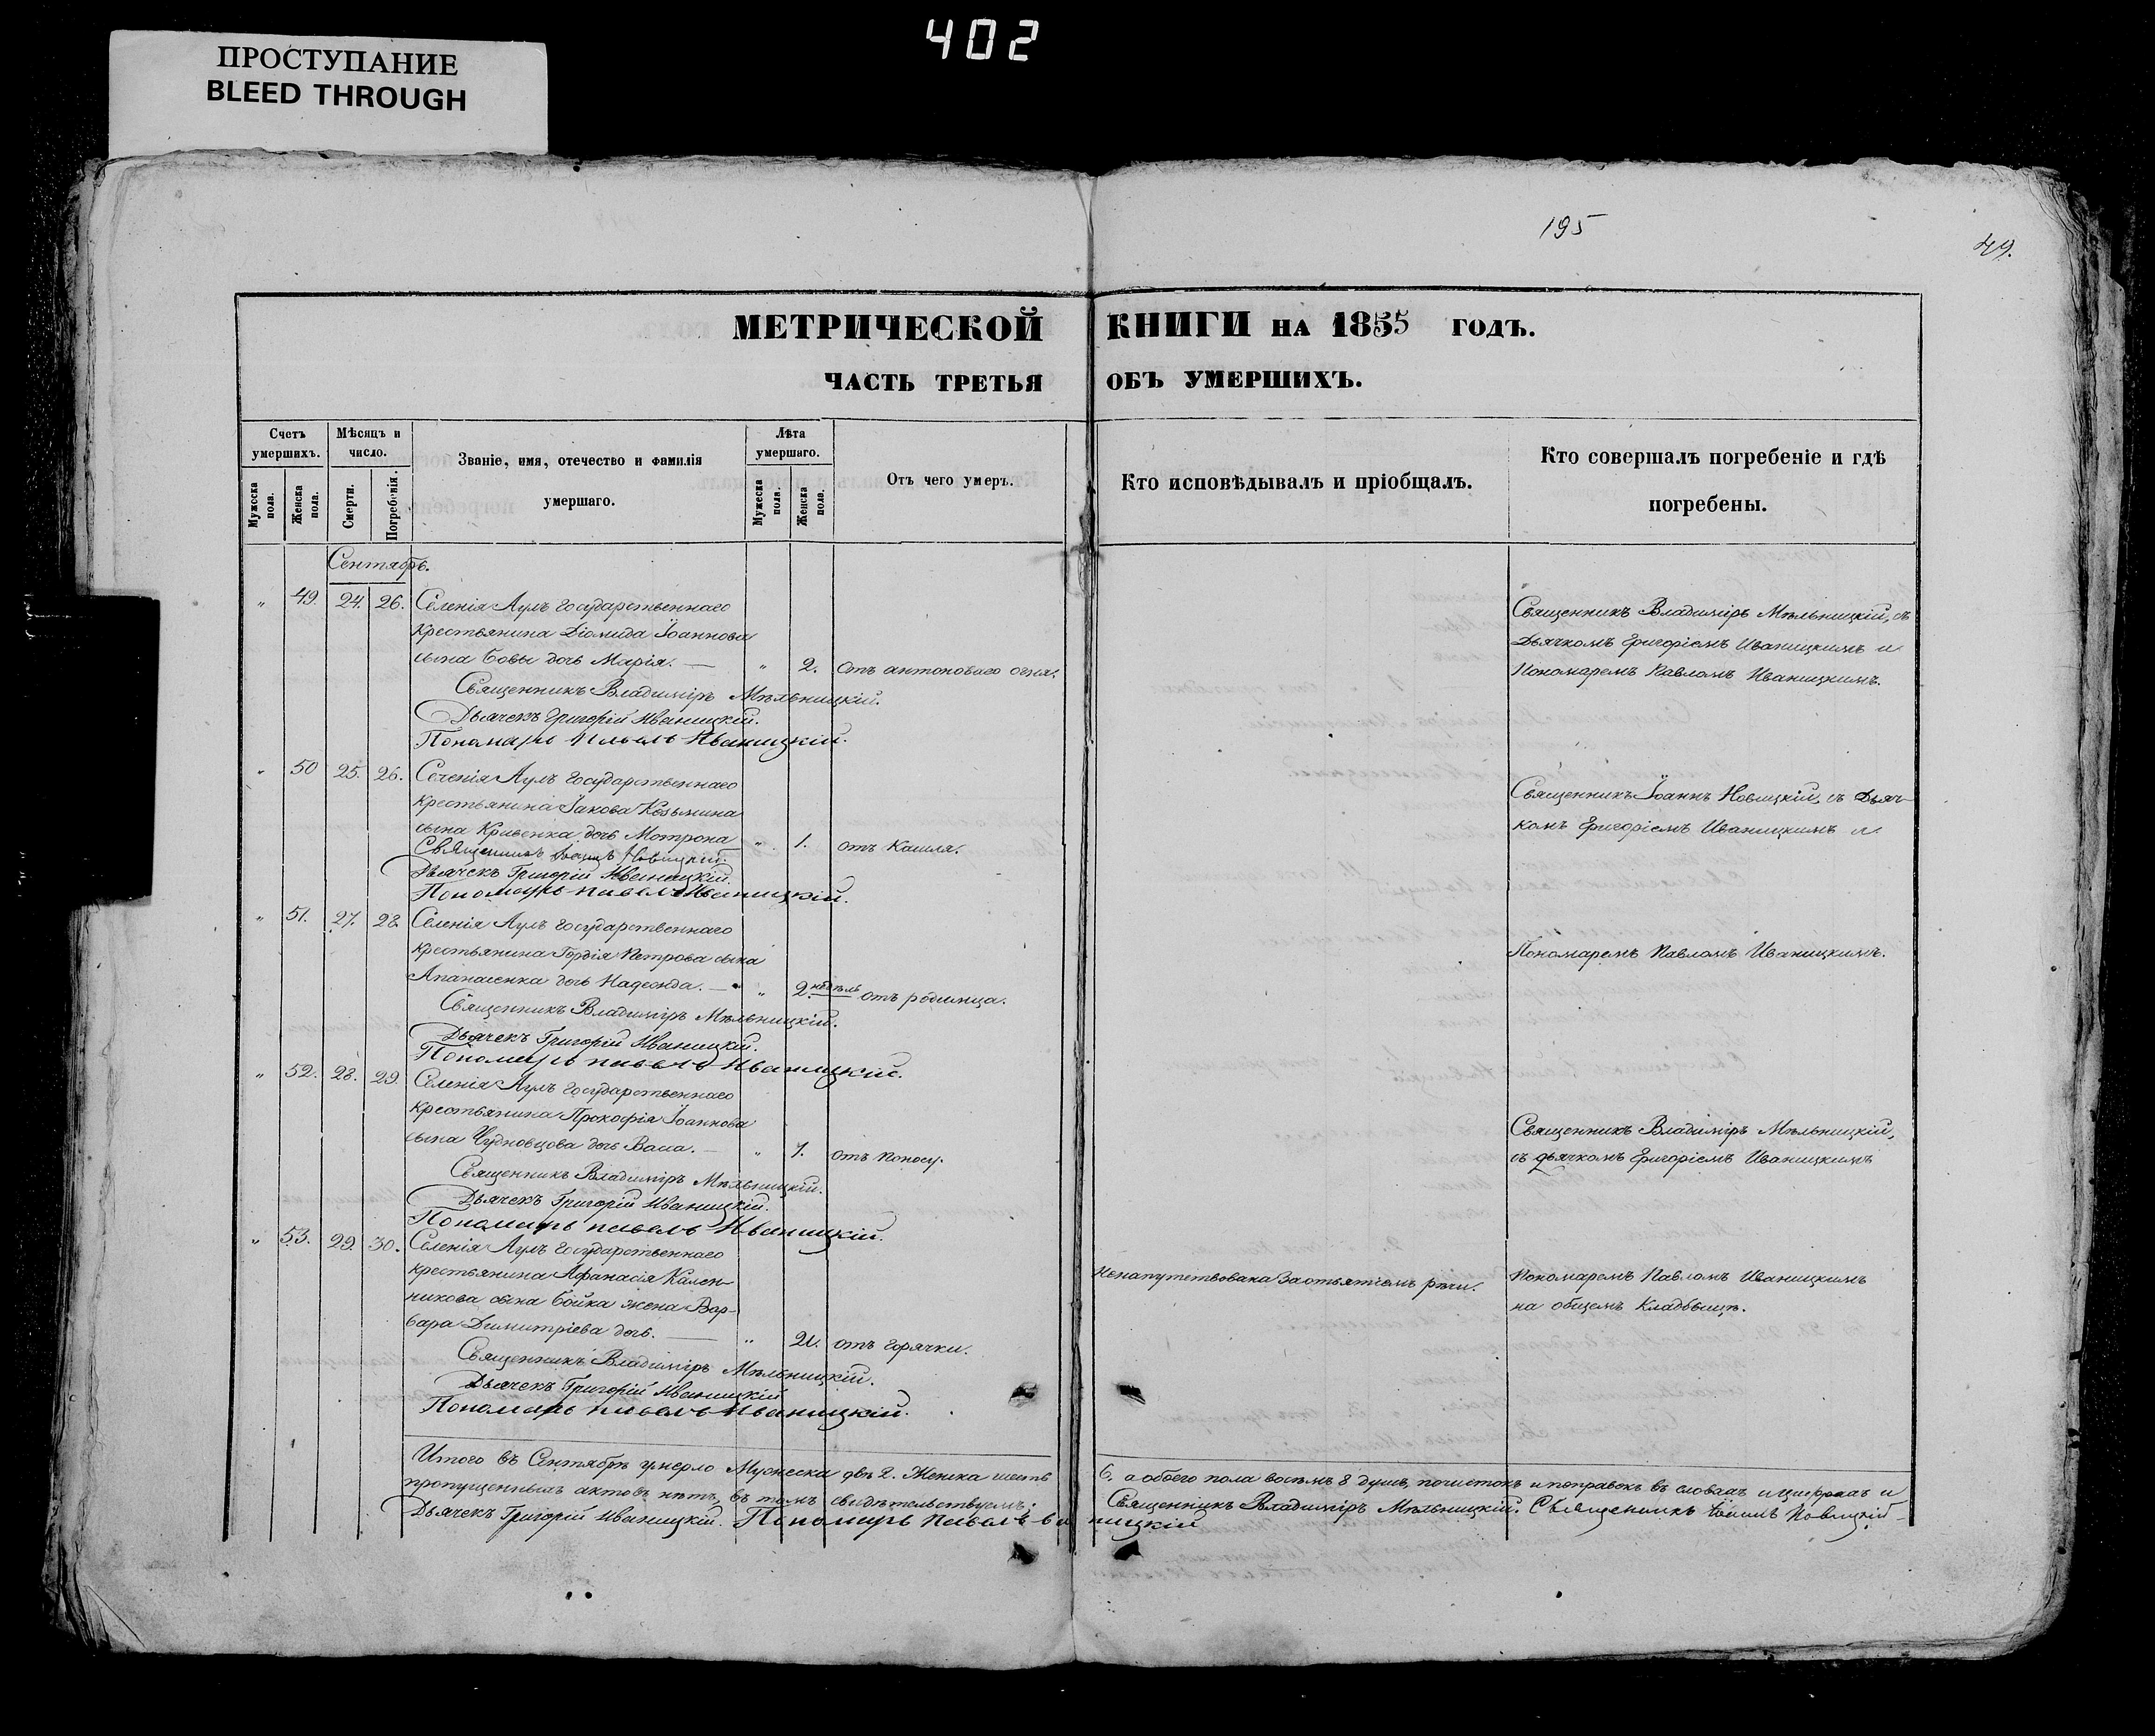 402
ПРОСТУПАНИЕ
BLEED THROUGH
195
49.
МЕТРИЧЕСКОЙ КНИГИ НА 1855 ГОДЪ.
ЧАСТЬ ТРЕТЬЯ ОБЪ УМЕРШИХЪ.
Счетъ умершихъ.
Мужеска пола.
Женска пола.
Мѣсяцъ и число.
Смерти.
Погребенія.
Званіе, имя, отечество и фамилія
умершаго.
Лѣта умершаго.
Мужеска пола.
Женска пола.
Отъ чего умеръ.
Кто исповѣдывалъ и пріобщалъ.
Кто совершалъ погребеніе и гдѣ
погребены.
Сентябрь.
" 49. 24. 26. Селенія Аулъ государственнаго
крестьянина Діомида Іоаннова
сына Бовы дочь Марія. — " 2. отъ антоноваго огня.
Священникъ Владиміръ Мѣльницкій.
Дьячекъ Григорій Иваницкій.
Пономарь Павелъ Иваницкій.
Священникъ Владиміръ Мѣльницкій, съ
Дьячкомъ Григоріемъ Иваницкимъ и
Пономаремъ Павломъ Иваницкимъ.
" 50 25. 26. Селенія Аулъ государственнаго
крестьянина Іакова Козьмина
сына Кривенка дочь Мотрона " 1. отъ кашля.
Священникъ Іоаннъ Новицкій.
Дьячекъ Григорій Иваницкій.
Пономарь Павелъ Иваницкій.
Священникъ Іоаннъ Новицкій, съ Дьяч-
комъ Григоріемъ Иваницкимъ и
" 51. 27. 28. Селенія Аулъ государственнаго
крестьянина Гордія Петрова сына
Апанасенка дочь Надежда. — " 2. недѣль отъ родимца.
Священникъ Владиміръ Мѣльницкій.
Дьячекъ Григорій Иваницкій.
Пономарь Павелъ Иваницкій.
Пономаремъ Павломъ Иваницкимъ.
" 52. 28. 29. Селенія Аулъ государственнаго
крестьянина Прокофія Іоаннова
сына Чудновцова дочь Васса. — " 1. отъ поносу.
Священникъ Владиміръ Мѣльницкій.
Дьячекъ Григорій Иваницкій.
Пономарь Павелъ Иваницкій.
Священникъ Владиміръ Мѣльницкій,
съ дьячкомъ Григоріемъ Иваницкимъ
" 53. 29. 30. Селенія Аулъ государственнаго
крестьянина Афанасія Кален-
никова сына Бойка жена Вар-
вара Димитріева дочь. — " 21. отъ горячки.
Священникъ Владиміръ Мѣльницкій.
Дьячекъ Григорій Иваницкій
Пономарь Павелъ Иваницкій.
Ненапутствована за отъятіемъ рѣчи.
Пономаремъ Павломъ Иваницкимъ
на общемъ кладбищѣ.
Итого въ Сентябрѣ умерло Мужеска двѣ 2. Женска шесть 6. а обоего пола восемь 8 душъ, почистокъ и поправокъ въ словахъ и цифрахъ и
пропущенныхъ актовъ нѣтъ, въ томъ свидѣтельствуемъ: Священникъ Владиміръ Мѣльницкій. Священникъ Іоаннъ Новицкій
Дьячекъ Григорій Иваницкій. Пономарь Павелъ Иваницкій